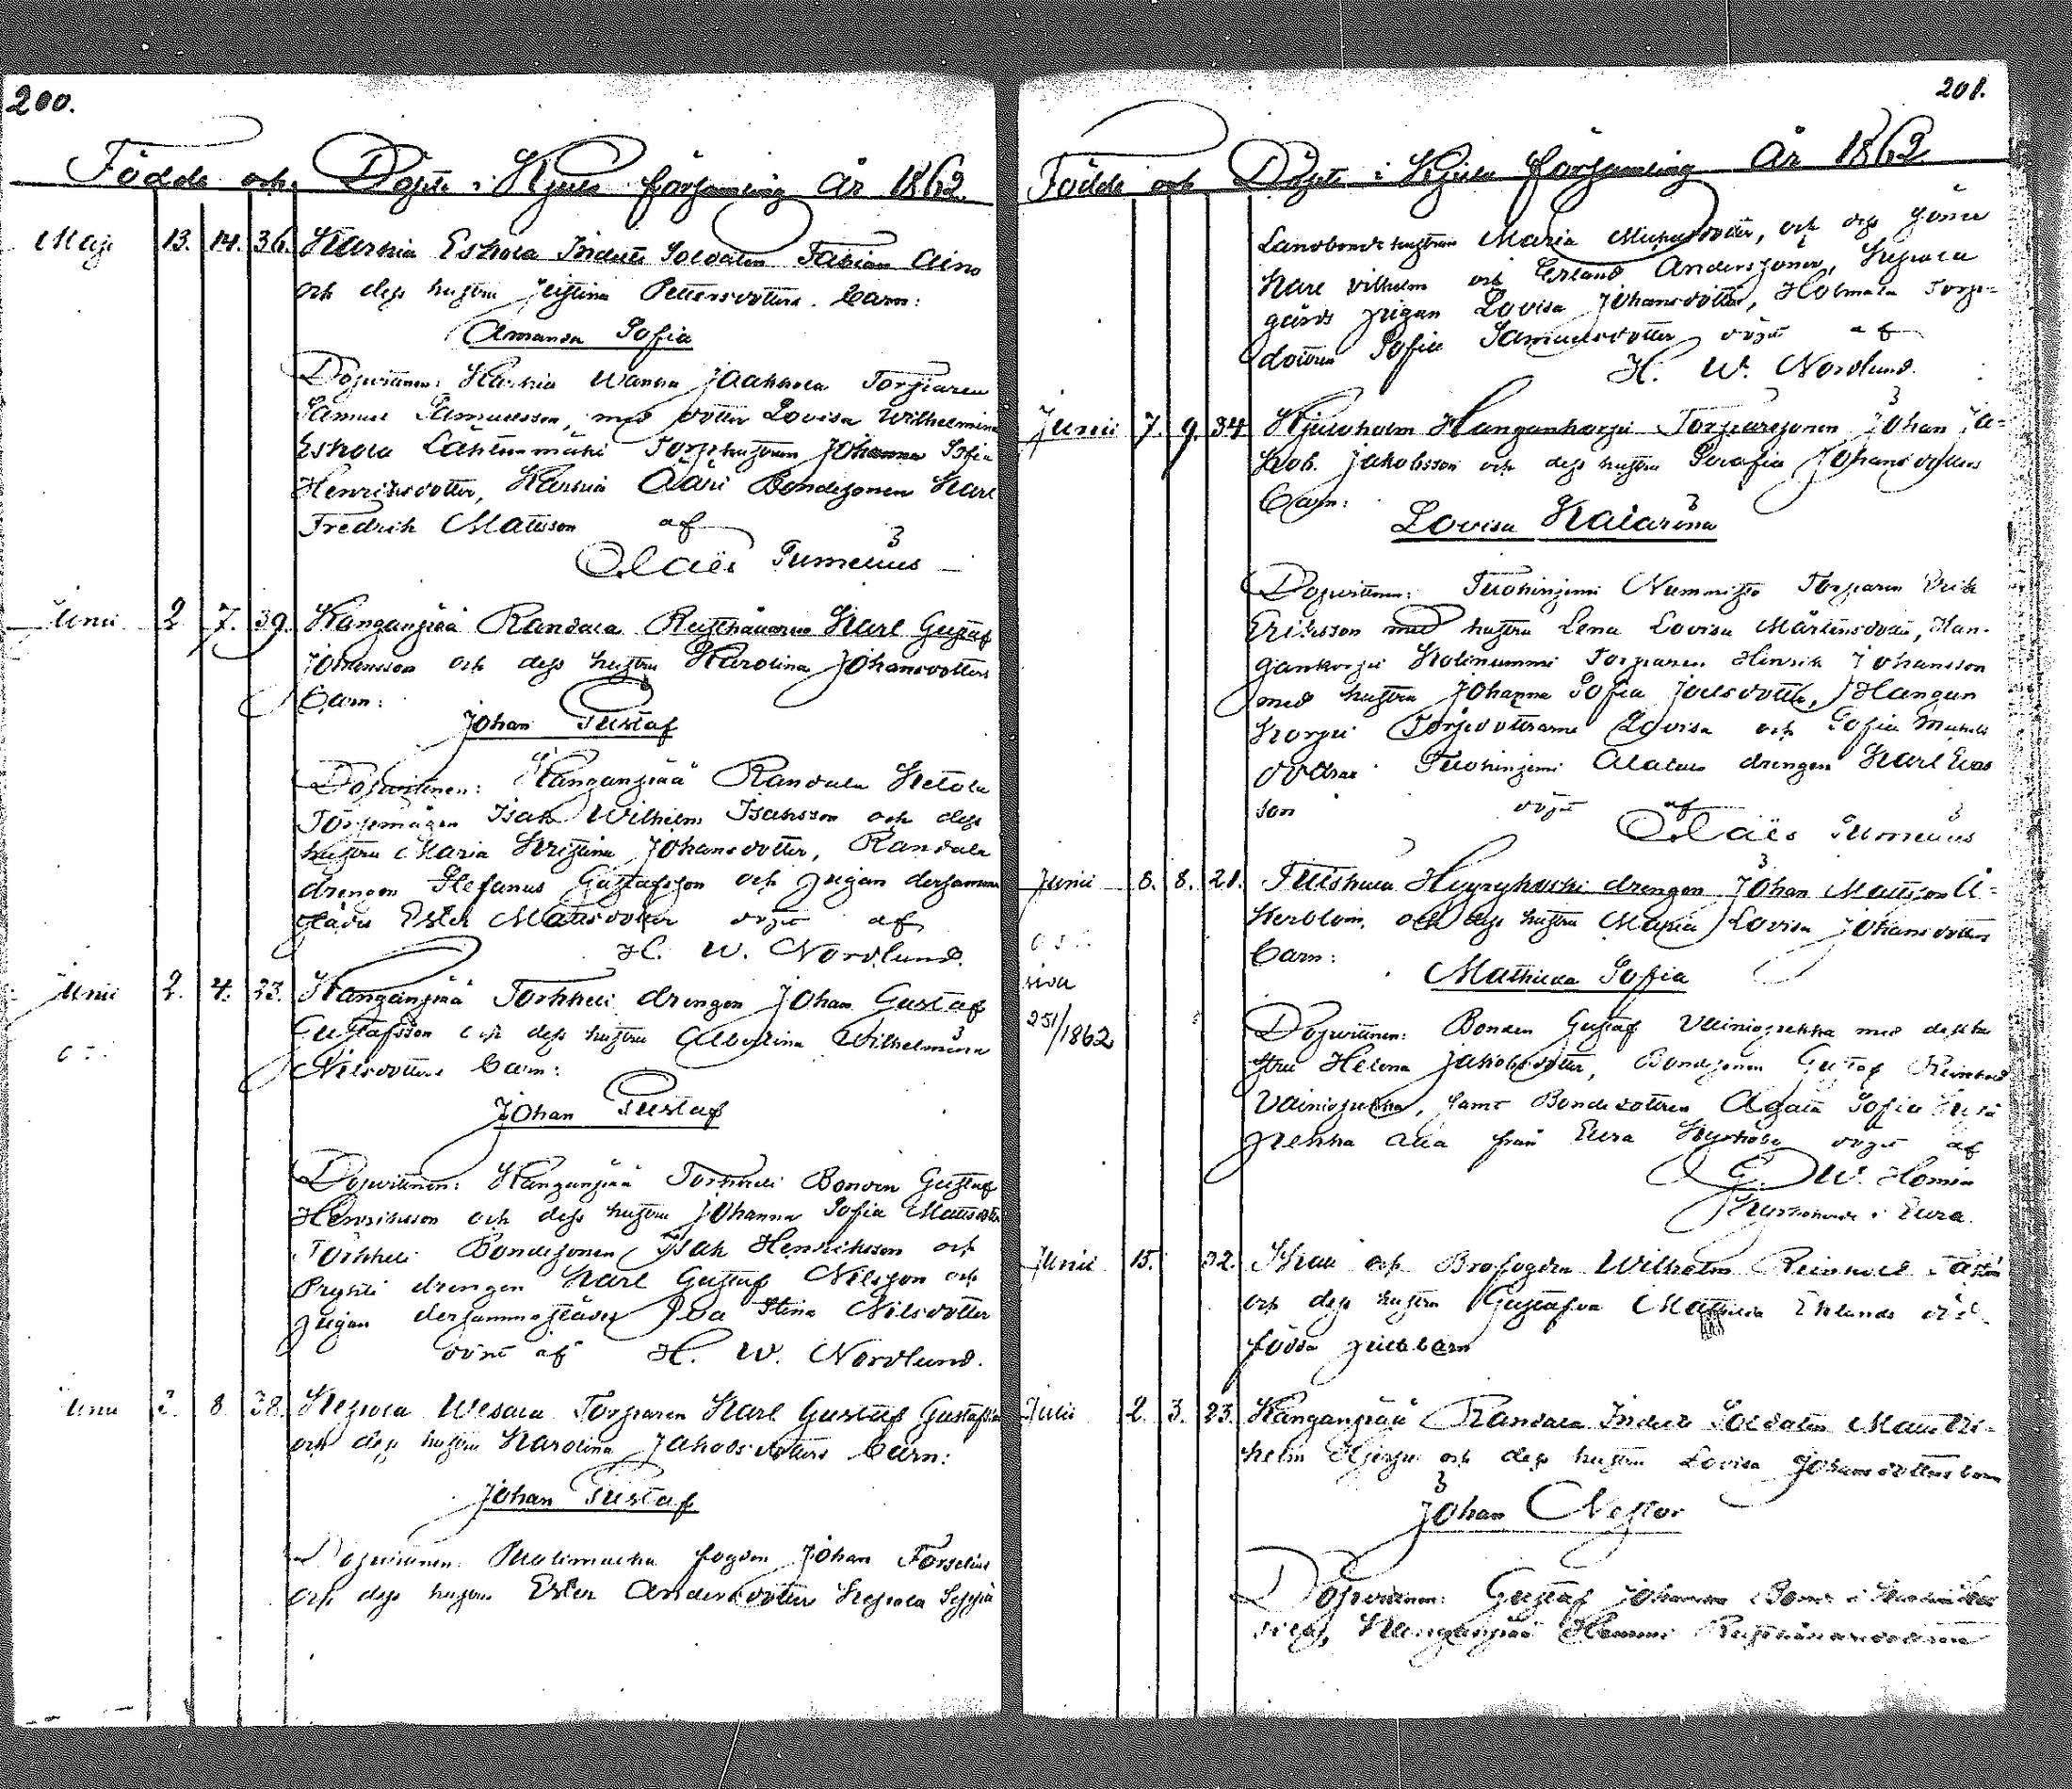 200.
Födde och Döpte i Kjulo församling År 1862
Maji 13. 14. 36. Karhia Eskola Indelte Soldaten Fabian Aino
och dess hustru Justina Pettersdotters Barn:
Amanda Sofia
Dopvittnen: Karhia Wanha Jaakkola Torparen
Samuel Samuelsson, med dotter Lovisa Wilhelmina
Eskola Lähteenmäki Torphustrun Johanna Sofia
Henriksdotter, Karhia Ääri Bondesonen Karl
Fredrik Mattsson af
Claës Sumelius
Junii 2 7. 39. Kanganpää Randala Rusthållaren Karl Gustaf
Johansson och dess hustru Karolina Johansdotters
Barn:
Johan Gustaf
Dopvittnen: Kanganpää Randala Ketola
Torpmågen Isak Wilhelm Isaksson och dess
hustru Maria Kristina Johansdotter, Randala
drengen Stefanus Gustafsson och pigan dersamma
städes Ester Mattsdotter döpt af
H. W. Nordlund.
Junii 2. 4. 23. Kanganpää Torkkeli drengen Johan Gustaf
Gustafsson och dess hustru Albertina Wilhelmina
Nilsdotters Barn:
Johan Gustaf
Dopvittnen: Kanganpää Torkkeli Bonden Gustaf
Henriksson och dess hustru Johanna Sofia Mattsdotter
Torkkeli Bondesonen Isak Henriksson och
drengen Karl Gustaf Nilsson och
pigan dersammastädes Eva Stina Nilsdotter
döpt af H. W. Nordlund.
Junii 8 38. Kepola Wesala Torparen Karl Gustaf Gustafsson
och dess hustru Karolina Jakobsdotters Barn:
Johan Gustaf
Dopvittnen: fogden Johan Forselius
och dess hustru Ester Andersdotter Kepola Seppä
201.
Födde och Döpte i Kjulo församling År 1862
Landbonde hustrun Maria Michelsdotter, och dess söner
Karl Vilhelm och Erland Anderssöner, Kepola
gårds pigan Lovisa Johansdotter, Holmala Torp=
dottren Sofia Samuelsdotter döpt af
H. W. Nordlund.
Junii 7. 9. 34 Kjuloholm Hangankorpi Torparesonen Johan Ja=
kob Jakobsson och dess hustru Serafia Johansdotters
Barn:
Lovisa Katarina
Dopvittnen: Tuohiniemi Nummisto Torparen Erik
Eriksson med hustru Lena Lovisa Mårtensdotter, Han-
gankorpi Kolinummi Torparen Henrik Johansson
med hustru Johanna Sofia Joelsdotter, Hangan
korpi Torpdöttrarne Lovisa och Sofia Michels
döttrar Tuohiniemi Alatalo drengen Karl Evas
son döpt af
Claës Sumelius
Junii 8. 8. 21. Tuiskula Hyyrykoski drengen Johan Mattsson Å=
kerblom, och dess hustru Maria Lovisa Johansdotters
Barn:
251/1862
Mathilda Sofia
Dopvittnen: Bonden Gustaf Vainiopekka med dess hu
stru Helena Jakobsdotter, Bondesonen Gustaf Reinhold
Vainiopekka, samt Bondedottren Agata Sofia
pekka alla från Eura Kyrkoby döpt af
G. W. Homén
i Eura.
Junii 15. 32. och Brofogden Wilhelm Reinhold
och dess hustru Gustafva Mathilda Ehlunds död
födda gossebarn
Julii 2. 3. 23. Kanganpää Randala Indelte Soldaten Matts Vil-
helm och dess hustru Lovisa Johansdotters barn
Johan Nestor
Dopvittnen: Gustaf Johansson Bonde i
Kanganpää Hemmi